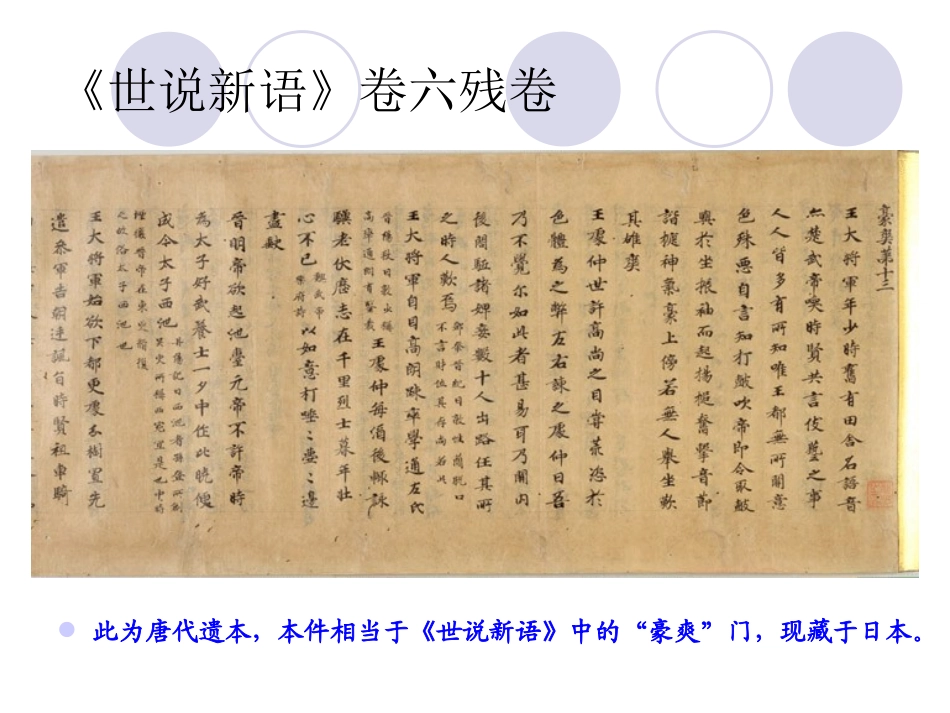 《世说新语》卷六残卷
豪爽第十三
王大將軍年少時舊有田舍名語音
亦楚武帝喚時賢共言伎藝之事
人人皆多有所知唯王都無所關意
色殊惡自言知打皷吹帝即令取皷
與於坐振袖而起揚搥奮擊音節
諧捷神氣豪上傍若無人舉坐歎
其雄爽
王處仲世許高尚之目嘗荒恣於
色體為之弊左右諫之處仲曰吾
乃不覺尔如此者甚易耳乃開內
後閤駈諸婢妾數十人出路任其所
之時人歎焉
王大將軍自目高朗踈率學通左氏
王處仲每酒後輙詠
驥老伏櫪志在千里烈士暮年壯
心不已 魏武帝樂府詩 以如意打唾
盡缺
晉明帝欲起池臺元帝不許帝時
為太子好武養士一夕中作池曉便
成今太子西池
王大將軍始欲下都更處分樹置先
遣參軍告朝廷諷旨時賢祖車騎
此为唐代遗本，本件相当于《世说新语》中的“豪爽”门，现藏于日本。